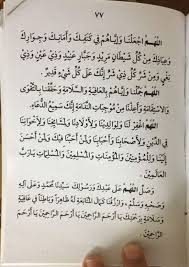 ٧٧
اللهم اجعلنا وإياهم في كنفك وأمانتك وجوارك
وعياذك من كل شيطان مريد وجبار عنيد وذي عين وذي
بغي ومن شر كل ذي شر إنك على كل شيء قدير.
اللهم جملنا وإياهم بالعافية والسلامة
والاستقامة وأعذنا من موجبات الندامة إنك سميع الدعاء.
اللهم اغفر لنا ولوالدينا ولأولادنا ولمشايخنا ولإخواننا
في الدين ولمن أحبنا فيك ولمن أحسن
إلينا وللمؤمنين والمؤمنات والمسلمين والمسلمات يا رب
العالمين.
وصل اللهم على عبدك ورسولك سيدنا محمد وعلى آله
وصحبه وسلم، وارزقنا كمال المتابعة له ظاهرا وباطنا في عافية
وسلامة برحمتك يا أرحم الراحمين يا أرحم الراحمين يا أرحم
الراحمين